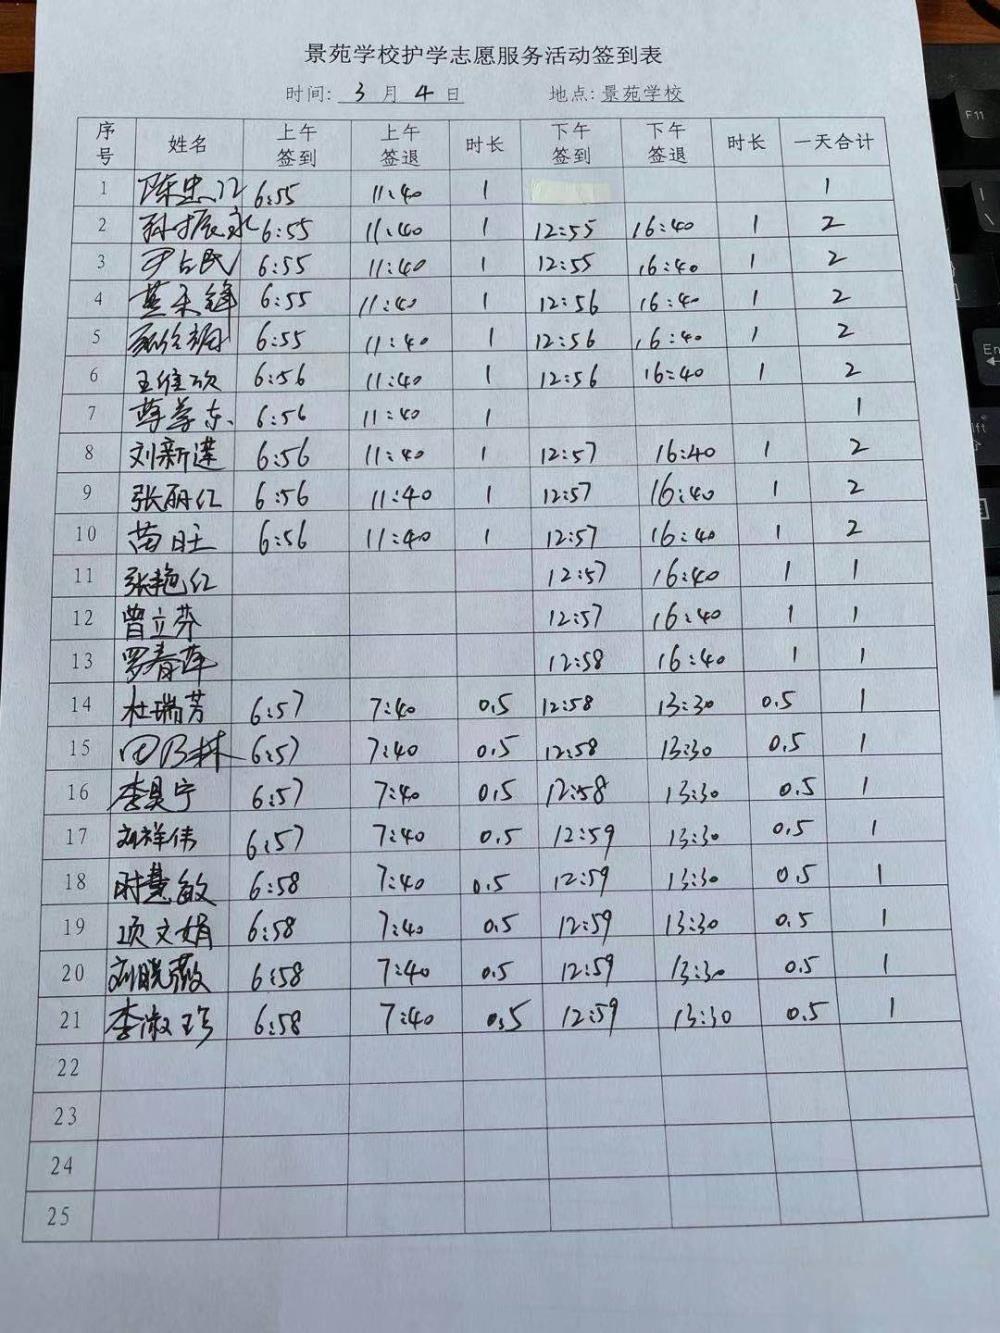 景苑学校护学志愿服务活动签到表
时间: 3 月 4 日 地点: 景苑学校
序号 姓名 上午签到 上午签退 时长 下午签到 下午签退 时长 一天合计
1 陈忠 6:55 11:40 1 1
2 孙振永 6:55 11:40 1 12:55 16:40 1 2
3 尹占民 6:55 11:40 1 12:55 16:40 1 2
4 6:55 11:40 1 12:56 16:40 1 2
5 6:55 11:40 1 12:56 16:40 1 2
6 王维欣 6:56 11:40 1 12:56 16:40 1 2
7 6:56 11:40 1 1
8 刘新莲 6:56 11:40 1 12:57 16:40 1 2
9 张丽红 6:56 11:40 1 12:57 16:40 1 2
10 苗旺 6:56 11:40 1 12:57 16:40 1 2
11 张艳红 12:57 16:40 1 1
12 曾立芬 12:57 16:40 1 1
13 罗春萍 12:58 16:40 1 1
14 杜瑞芳 6:57 7:40 0.5 12:58 13:30 0.5 1
15 田乃林 6:57 7:40 0.5 12:58 13:30 0.5 1
16 李昊宁 6:57 7:40 0.5 12:58 13:30 0.5 1
17 刘祥伟 6:57 7:40 0.5 12:59 13:30 0.5 1
18 时慧敏 6:58 7:40 0.5 12:59 13:30 0.5 1
19 项文娟 6:58 7:40 0.5 12:59 13:30 0.5 1
20 刘晓薇 6:58 7:40 0.5 12:59 13:30 0.5 1
21 李淑珍 6:58 7:40 0.5 12:59 13:30 0.5 1
22
23
24
25
F11